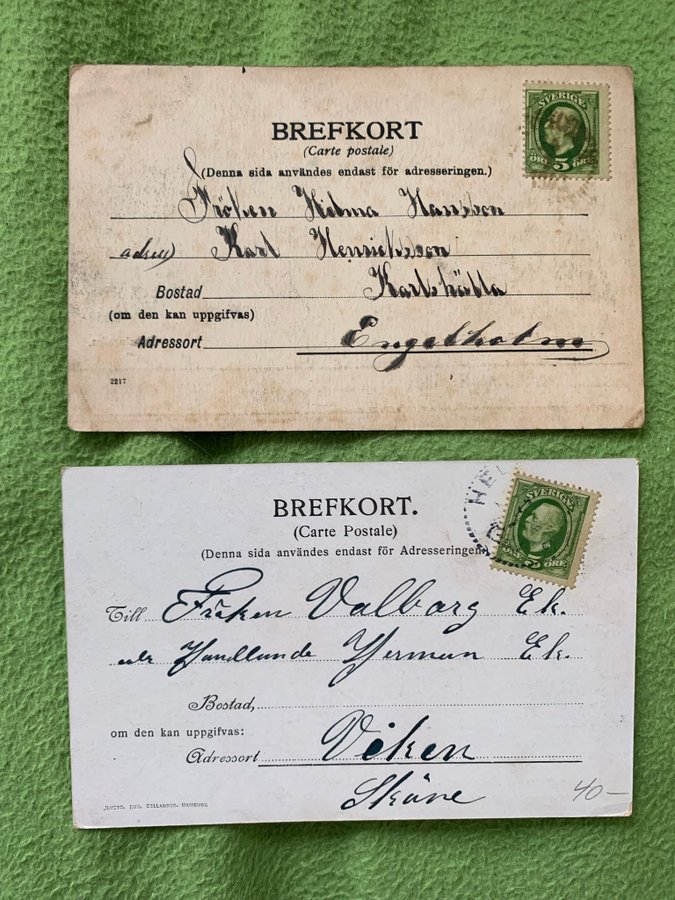 BREFKORT
(Carte postale)
(Denna sida användes endast för adresseringen.)
SVERIGE
ÖRE 5 ÖRE
Fröken Hilma Hansson
adress Karl Henricksson
Bostad Karlshätta
(om den kan uppgifvas)
Adressort Engelholm
2217
BREFKORT.
(Carte Postale)
(Denna sida användes endast för Adresseringen
HEL
SVERIGE
5 ÖRE
Till Fröken Valborg Ek.
adr Handlande Herman Ek.
Bostad,
om den kan uppgifvas:
Adressort Viken
Skåne
40-